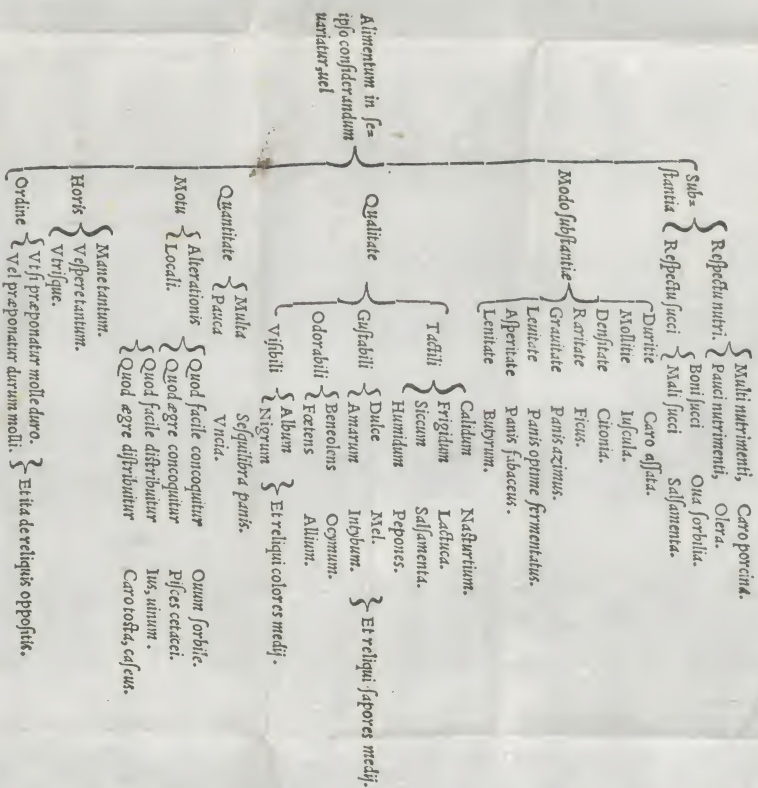 Alimentum in ſe=
ipſo conſiderandum
uariatur, uel
Sub=
ſtantia
Reſpectu nutri.
Multi nutrimenti, Caro porcina.
Pauci nutrimenti, Olera.
Reſpectu ſucci
Boni ſucci Oua ſorbilia.
Mali ſucci Salſamenta.
Modo ſubſtantiæ
Duritie Caro aſſata.
Mollitie Iuſcula.
Denſitate Citonia.
Raritate Ficus.
Grauitate Panis azimus.
Leuitate Panis optime fermentatus.
Aſperitate Panis fabaceus.
Lenitate Butyrum.
Qualitate
Tactili
Calidum Naſturtium.
Frigidum Lactuca.
Siccum Salſamenta.
Humidum Pepones.
Guſtabili
Dulce Mel.
Amarum Intybum.
Et reliqui ſapores medij.
Odorabili
Beneolens Ocymum.
Fœtens Allium.
Viſibili
Album
Nigrum
Et reliqui colores medij.
Quantitate
Multa Seſquilibra panis.
Pauca Vncia.
Motu
Alterationis
Quod facile concoquitur Ouum ſorbile.
Quod ægre concoquitur Piſces cetacei.
Locali.
Quod facile diſtribuitur Ius, uinum.
Quod ægre diſtribuitur Caro toſta, caſeus.
Horis
Mane tantum.
Veſpere tantum.
Vtriſque.
Ordine
Vt ſi præponatur molle duro.
Vel præponatur durum molli.
Et ita de reliquis oppoſitis.